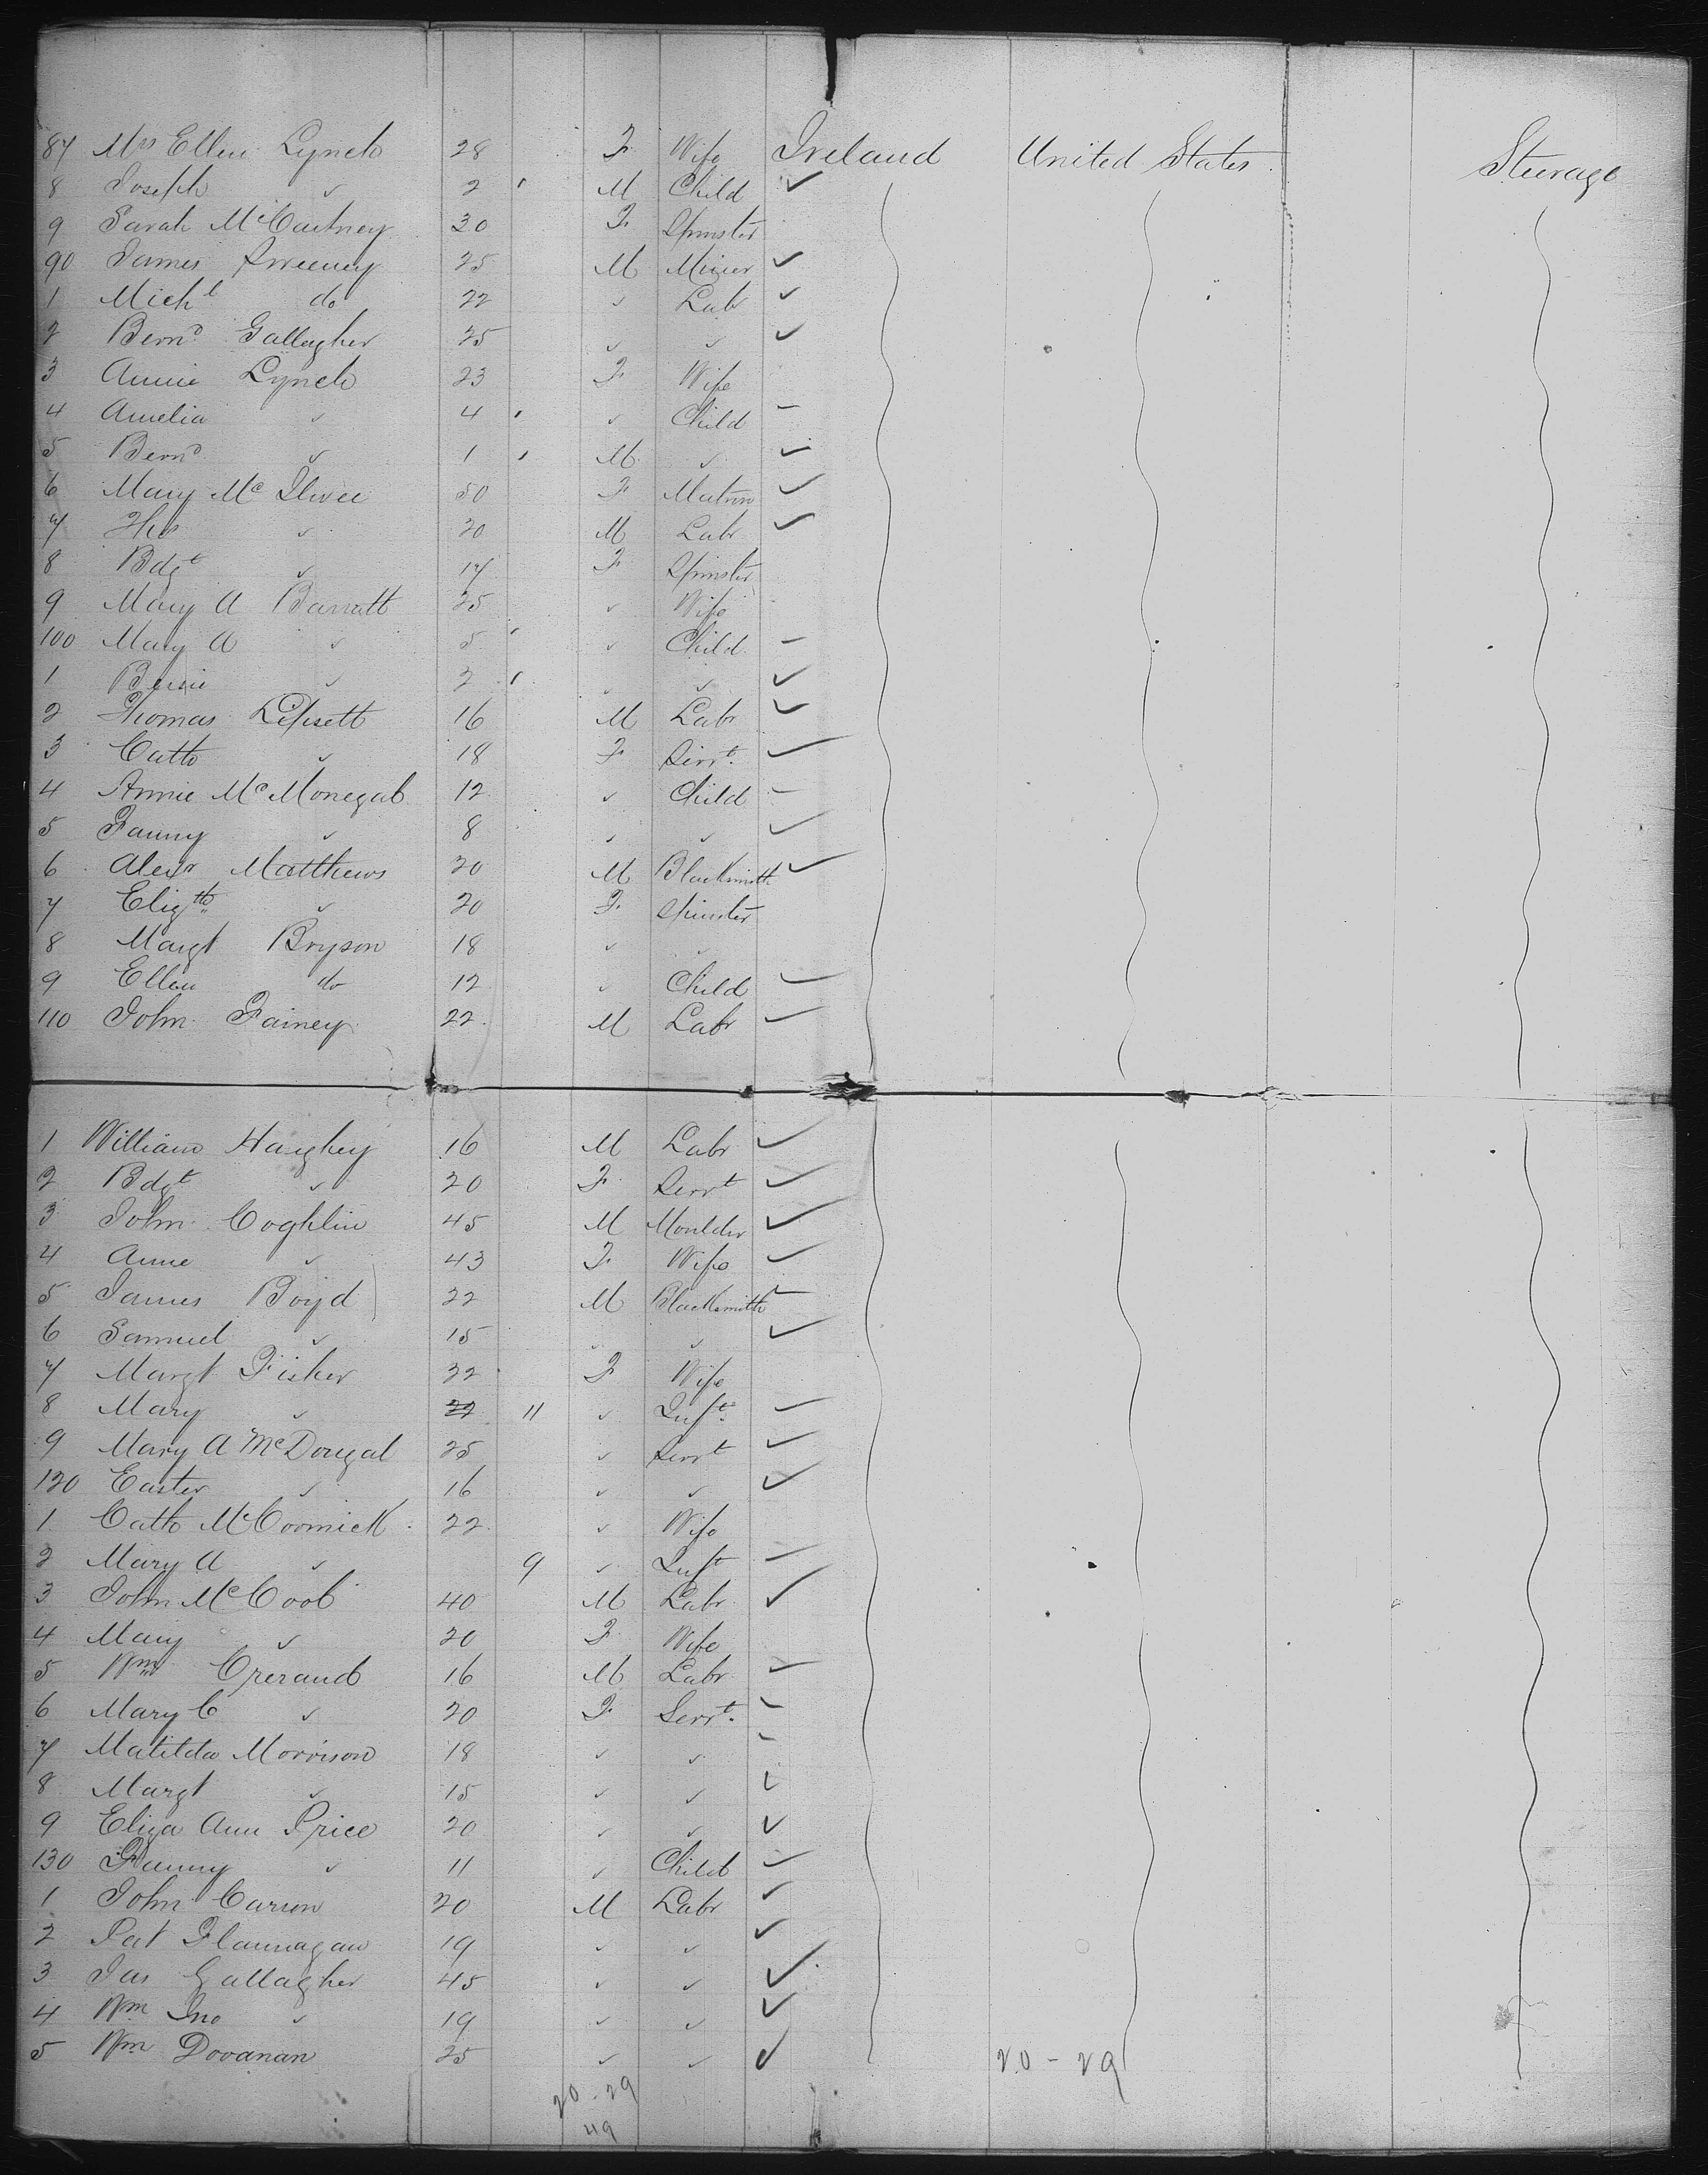 87 Mrs Ellen Lynch 28 F Wife Ireland United States Steerage
8 Joseph " 2 M Child
9 Sarah McCartney 30 F Spinster
90 James Sweeney 25 M Miner
1 Michl do 22 " Labr
2 Bernd Gallagher 25 " "
3 Annie Lynch 23 F Wife
4 Amelia " 4 " Child
5 Bernd " 1 M "
6 Mary Mc Ilwee 50 F Matron
7 " 20 M Labr
8 Bdgt " 17 F Spinster
9 Mary A Barratt 25 " Wife
100 Mary A " 5 " Child
1 Bessie " 2 " "
2 Thomas Lipsett 16 M Labr
3 Cath " 18 F Servt.
4 Annie McMonegal 12 " Child
5 Fanny " 8 " "
6 Alexr Matthews 20 M Blacksmith
7 Elizth " 20 F Spinster
8 Margt Bryson 18 " "
9 Ellen do 12 " Child
110 John Fainey 22 M Labr
1 William Haughey 16 M Labr
2 Bdgt " 20 F Servt
3 John Coghlin 45 M Moulder
4 Anne " 43 F Wife
5 James Boyd 22 M Blacksmith
6 Samuel " 15 " "
7 Margt Fisher 32 F Wife
8 Mary " 11 " Inft.
9 Mary A McDougal 25 " Servt
120 Easter " 16 " "
1 Cath McCormick 22 " Wife
2 Mary A " 9 " Inft
3 John McCool 40 M Labr
4 Mary " 20 F Wife
5 Wm Crerand 16 M Labr
6 Mary C " 20 F Servt.
7 Matilda Morrison 18 " "
8 Margt " 15 " "
9 Eliza Ann Price 20 " "
130 Fanny " 11 " Child
1 John Carson 20 M Labr
2 Pat Flannagan 19 " "
3 Jas Gallagher 45 " "
4 Wm Jno " 19 " "
5 Wm Dovanan 25 " " 20-29
20-29
49